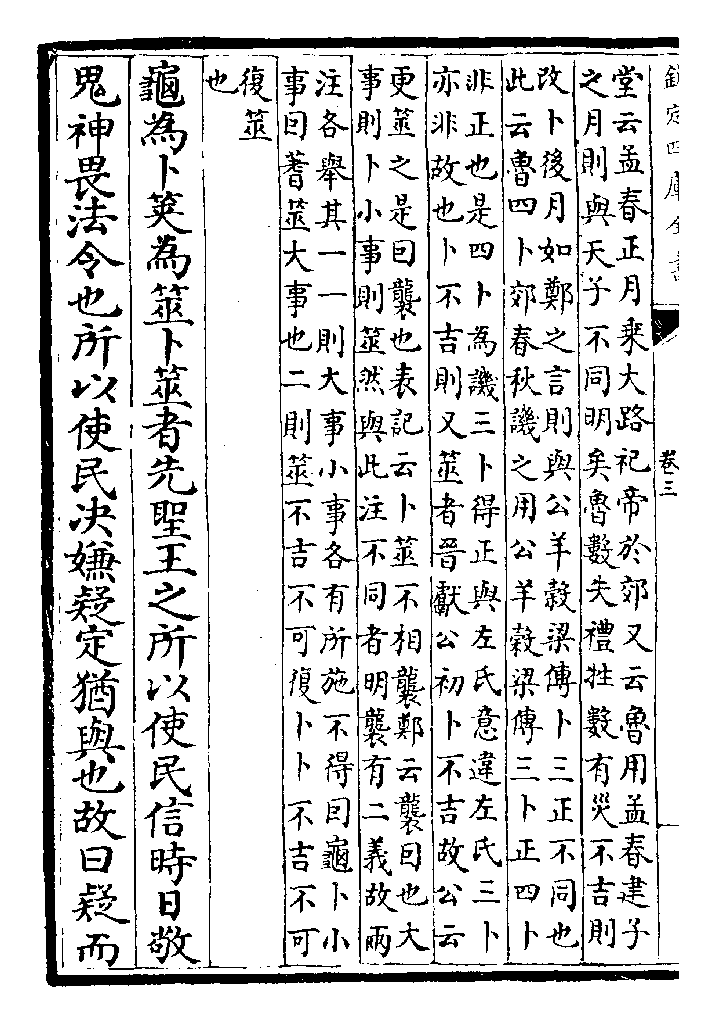 欽定四庫全書
卷三
堂云孟春正月乘大路祀帝於郊又云魯用孟春建子
之月則與天子不同明矣魯數失禮牲數有災不吉則
改卜後月如鄭之言則與公羊榖梁傳卜三正不同也
此云魯四卜郊春秋譏之用公羊榖梁傳三卜正四卜
非正也是四卜為譏三卜得正與左氏意違左氏三卜
亦非故也卜不吉則又筮者晉獻公初卜不吉故公云
更筮之是因襲也表記云卜筮不相襲鄭云襲因也大
事則卜小事則筮然與此注不同者明襲有二義故兩
注各舉其一一則大事小事各有所施不得因龜卜小
事因蓍筮大事也二則筮不吉不可復卜卜不吉不可
復筮
也
龜為卜筴為筮卜筮者先聖王之所以使民信時日敬
鬼神畏法令也所以使民决嫌疑定猶與也故曰疑而